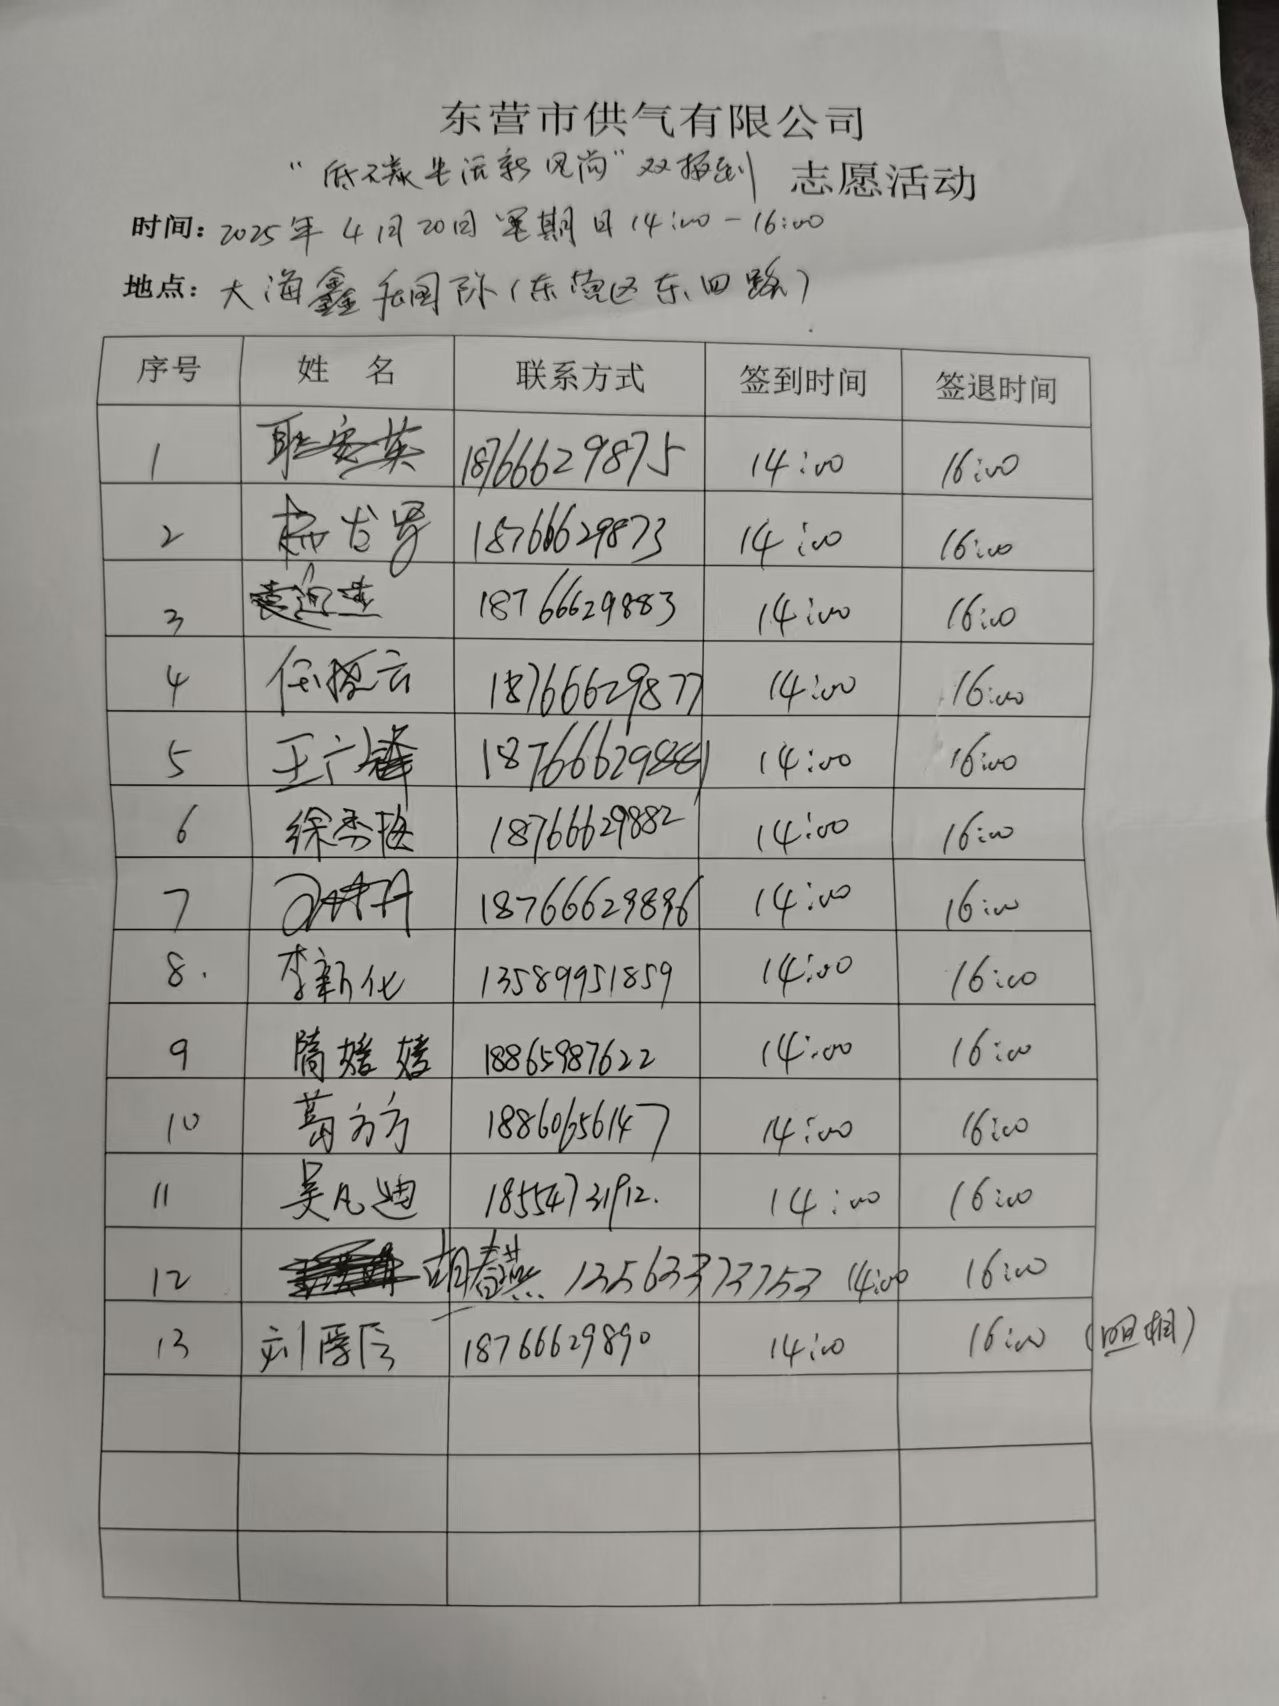 东营市供气有限公司
“低碳生活新风尚”双报到 志愿活动
时间：2025年4月20日星期日14:00-16:00
地点：大海鑫 国际(东营区东四路)
序号 姓名 联系方式 签到时间 签退时间
1 耿安英 18766629875 14:00 16:00
2 18766629873 14:00 16:00
3 18766629883 14:00 16:00
4 任 云 18766629877 14:00 16:00
5 王广锋 18766629881 14:00 16:00
6 徐秀梅 18766629882 14:00 16:00
7 18766629896 14:00 16:00
8. 李新化 13589951859 14:00 16:00
9 隋媛媛 18865987622 14:00 16:00
10 葛方方 18860656147 14:00 16:00
11 吴凡迪 18554731912. 14:00 16:00
12 胡春燕 13563373753 14:00 16:00
13 刘 18766629890 14:00 16:00 (照相)